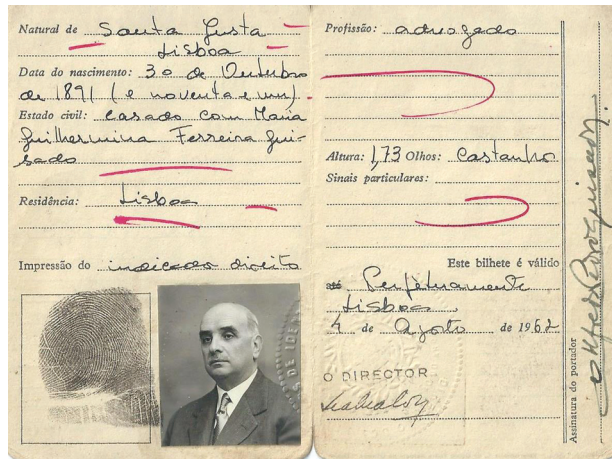 Natural de Santa Justa
Lisboa
Data do nascimento: 30 de Outubro
de 1891 (e noventa e um)
Estado civil: Casado com Maria
Guilhermina Ferreira Gui-
sado
Residência: Lisboa
Impressão do indicador direito
Profissão: advogado
Altura: 1,73 Olhos: Castanho
Sinais particulares:
Este bilhete é válido
até Perpètuamente
Lisboa
4 de Agosto de 1962
O DIRECTOR
Assinatura do portador